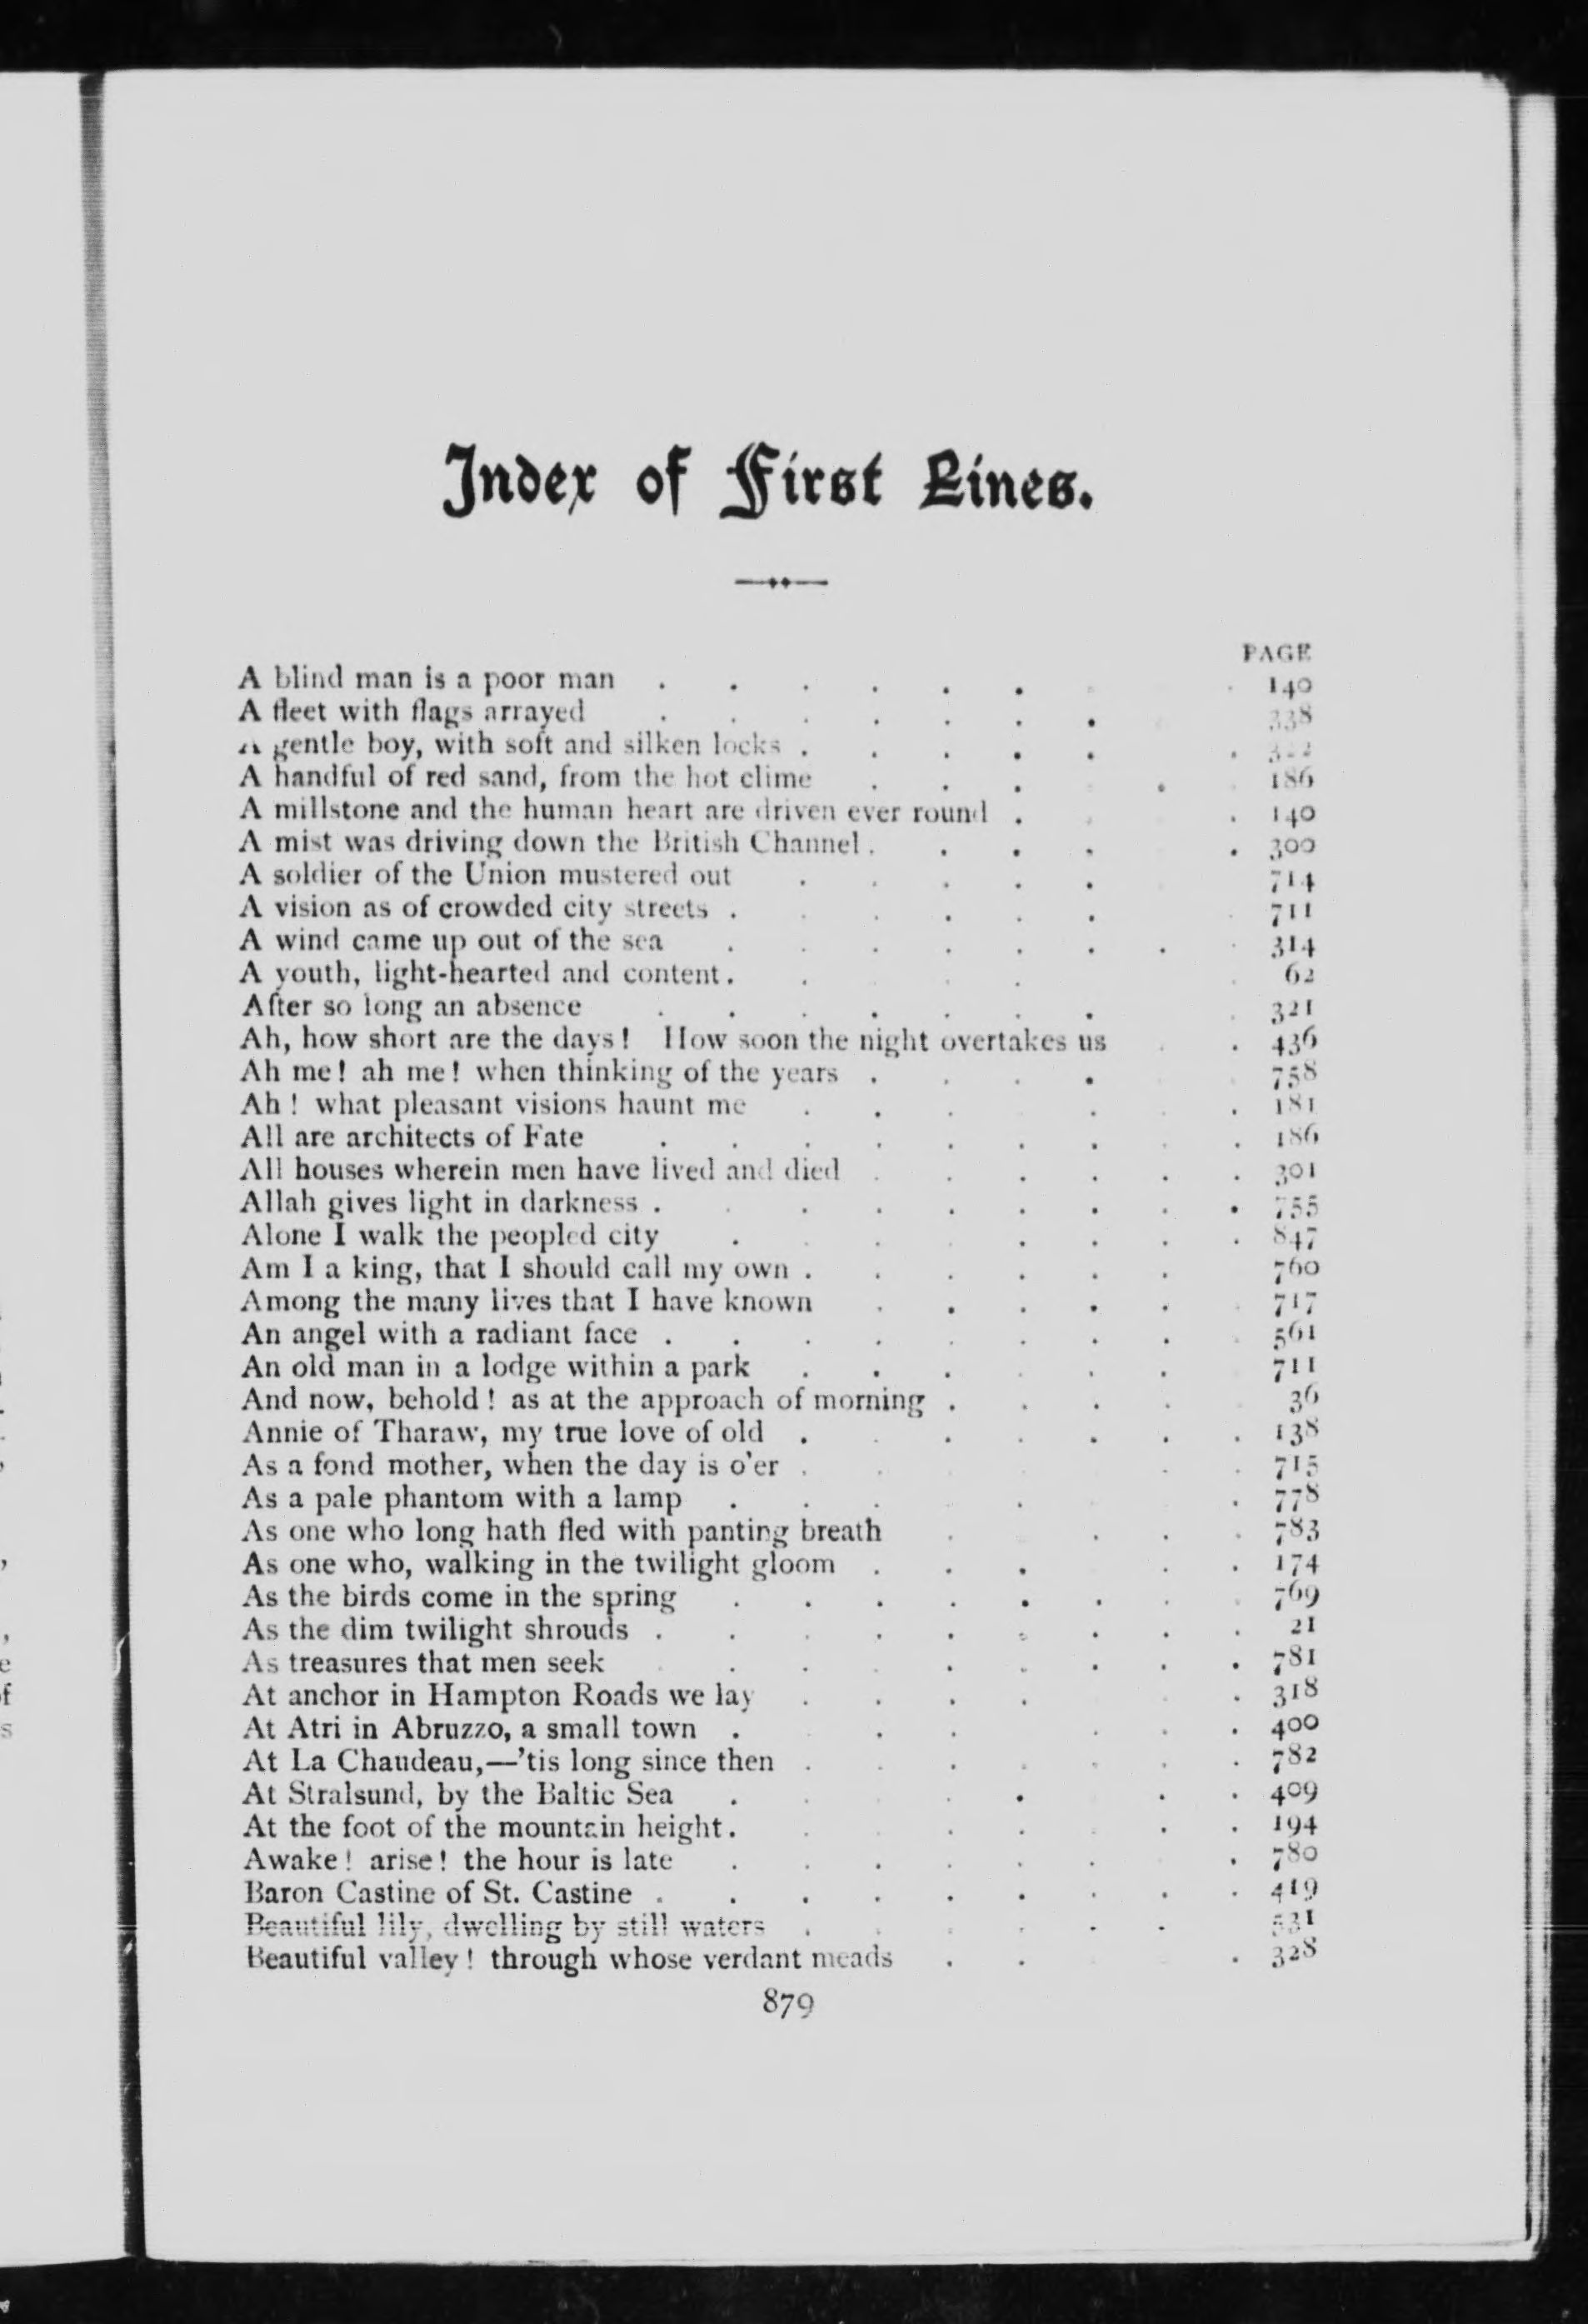 Index of First Lines.
PAGE
A blind man is a poor man . . . . . . . 140
A fleet with flags arrayed . . . . . . . 338
A gentle boy, with soft and silken locks . . . . . .
A handful of red sand, from the hot clime . . . . 186
A millstone and the human heart are driven ever round . . . 140
A mist was driving down the British Channel . . . . . 300
A soldier of the Union mustered out . . . . . 714
A vision as of crowded city streets . . . . . . . 711
A wind came up out of the sea . . . . . . . . 314
A youth, light-hearted and content . . . . . 62
After so long an absence . . . . . . . . 321
Ah, how short are the days! How soon the night overtakes us . . 436
Ah me! ah me! when thinking of the years . . . . 758
Ah! what pleasant visions haunt me . . . . . . 181
All are architects of Fate . . . . . . . . . 186
All houses wherein men have lived and died . . . . . . 301
Allah gives light in darkness . . . . . . . . . 755
Alone I walk the peopled city . . . . . . . . 847
Am I a king, that I should call my own . . . . . . 760
Among the many lives that I have known . . . . . . 717
An angel with a radiant face . . . . . . . . . 561
An old man in a lodge within a park . . . . . . 711
And now, behold! as at the approach of morning . . . . 36
Annie of Tharaw, my true love of old . . . . . . . 138
As a fond mother, when the day is o'er . . . . 715
As a pale phantom with a lamp . . . . . . 778
As one who long hath fled with panting breath . . . . 783
As one who, walking in the twilight gloom . . . . . 174
As the birds come in the spring . . . . . . . . 769
As the dim twilight shrouds . . . . . . . . . 21
As treasures that men seek . . . . . . . . 781
At anchor in Hampton Roads we lay . . . . . . 318
At Atri in Abruzzo, a small town . . . . . . 400
At La Chaudeau,—'tis long since then . . . . . . . 782
At Stralsund, by the Baltic Sea . . . . . . 409
At the foot of the mountain height . . . . . . . 194
Awake! arise! the hour is late . . . . . . . 780
Baron Castine of St. Castine . . . . . . . . . 419
Beautiful lily, dwelling by still waters . . . . . . 531
Beautiful valley! through whose verdant meads . . . 328
879